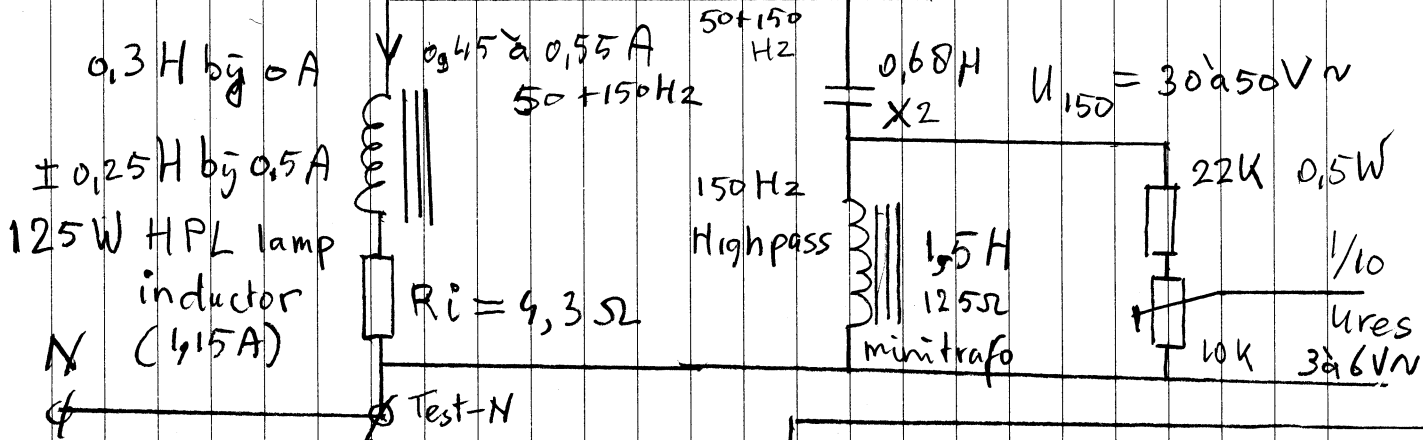 0,3 H bÿ 0 A
± 0,25 H bÿ 0,5 A
125W HPL lamp
inductor
(1,15A)
N
0,45 à 0,55 A
50 + 150Hz
Ri = 4,3 Ω
Test-N
50+150
Hz
0,68µ
X2
150Hz
Highpass
1,5 H
125Ω
minitrafo
U150 = 30 à 50V ~
22K 0,5W
10K
1/10
Ures
3 à 6V~